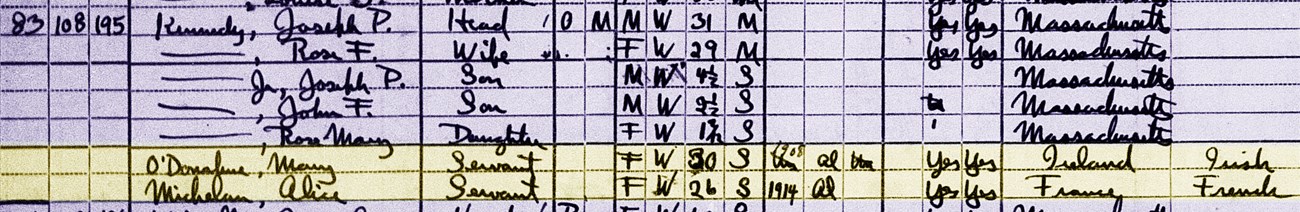 83 108 195 Kennedy, Joseph P. Head 1 O M M W 31 M Yes Yes Massachusetts
——, Rose F. Wife F W 29 M Yes Yes Massachusetts
——, Jr, Joseph P. Son M W 4½ S Massachusetts
——, John F. Son M W S Massachusetts
——, Rose Mary Daughter F W S Massachusetts
O'Donahue, Mary Servant F W 30 S 1908 al Yes Yes Ireland Irish
Michelan, Alice Servant F W 26 S 1914 al Yes Yes France French